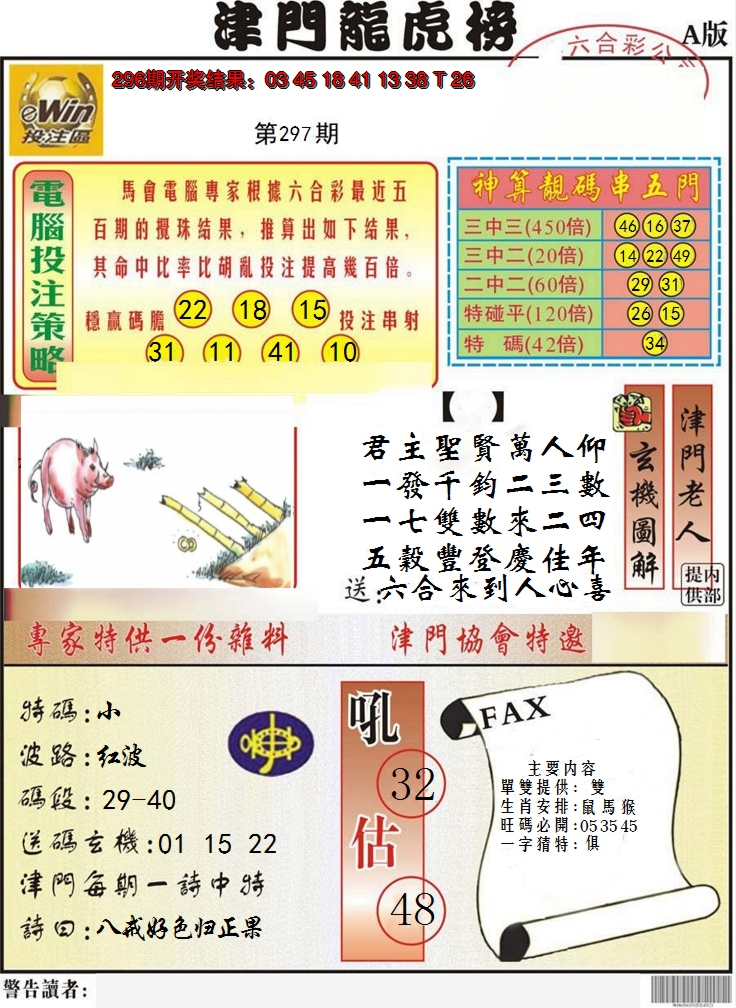 津門龍虎榜
六合彩公
A版
eWin
投注區
296期开奖结果：03 45 18 41 13 38 T 26
第297期
電腦投注策略
馬會電腦專家根據六合彩最近五
百期的攪珠结果，推算出如下结果，
其命中比率比胡亂投注提高幾百倍。
穩贏碼膽 22 18 15 投注串射
31 11 41 10
神算靚碼串五門
三中三(450倍) 46 16 37
三中二(20倍) 14 22 49
二中二(60倍) 29 31
特碰平(120倍) 26 15
特 碼(42倍) 34
【 】
君主聖賢萬人仰
一發千鈞二三數
一七雙數來二四
五穀豐登慶佳年
送:六合來到人心喜
玄機圖解
津門老人
内部提供
專家特供一份雜料
津門協會特邀
特碼:小
波路:红波
碼段:29-40
送碼玄機:01 15 22
津門每期一詩中特
詩曰:八戒好色归正果
吼
32
估
48
FAX
主要内容
單雙提供: 雙
生肖安排:鼠馬猴
旺碼必開:053545
一字猜特: 俱
警告讀者: